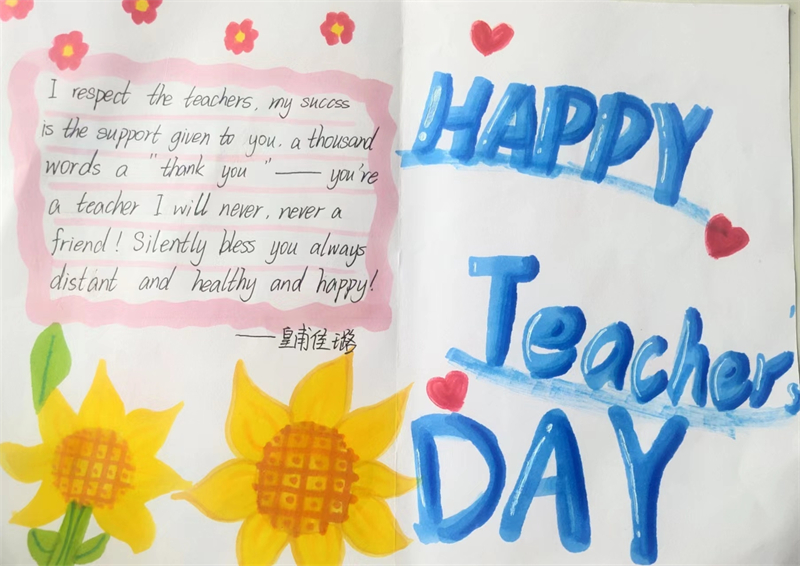 I respect the teachers, my success
is the support given to you. a thousand
words a "thank you" —— you're
a teacher I will never, never a
friend! Silently bless you always
distant and healthy and happy!
——皇甫佳璐
HAPPY
Teacher's
DAY